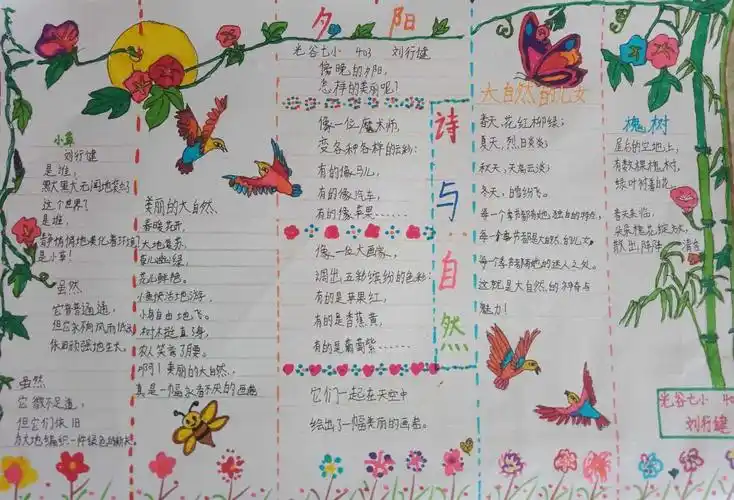 小草
刘行健
是谁,
默默无闻地装点
这个世界?
是谁,
静悄悄地美化着环境?
是小草!
虽然
它普普通通,
但它永狗风而低头
依旧顽强地生长。
虽然
它微不足道,
但它们依旧
为大地编织一件绿色的新衣。
美丽的大自然
春暖花开,
大地复苏,
草儿嫩绿,
花儿鲜艳。
小鱼快活地游,
小鸟自由地飞。
树木挺直身,
农人笑弯了腰。
啊!美丽的大自然,
真是一幅永看不厌的画卷
夕阳
光谷七小 403 刘行健
傍晚的夕阳,
怎样的美丽呢?
像一位魔术师,
变各种各样的云彩:
有的像马儿,
有的像汽车,
有的像苹果……
像一位大画家,
调出五彩缤纷的色彩:
有的是苹果红,
有的是香蕉黄,
有的是葡萄紫……
它们一起在天空中
绘出了一幅美丽的画卷。
诗与自然
大自然的儿女
春天,花红柳绿;
夏天,烈日炎炎;
秋天,天高云淡;
冬天,白雪纷飞。
每一个季节都有她独自的特点,
每一个季节都是大自然的儿女。
每个季节都有她的迷人之处。
这就是大自然的神奇与
魅力!
槐树
屋后的空地上,
有数棵槐树,
绿叶衬着花。
春天来临,
朵朵槐花绽放,
散出阵阵清香
光谷七小 403
刘行健